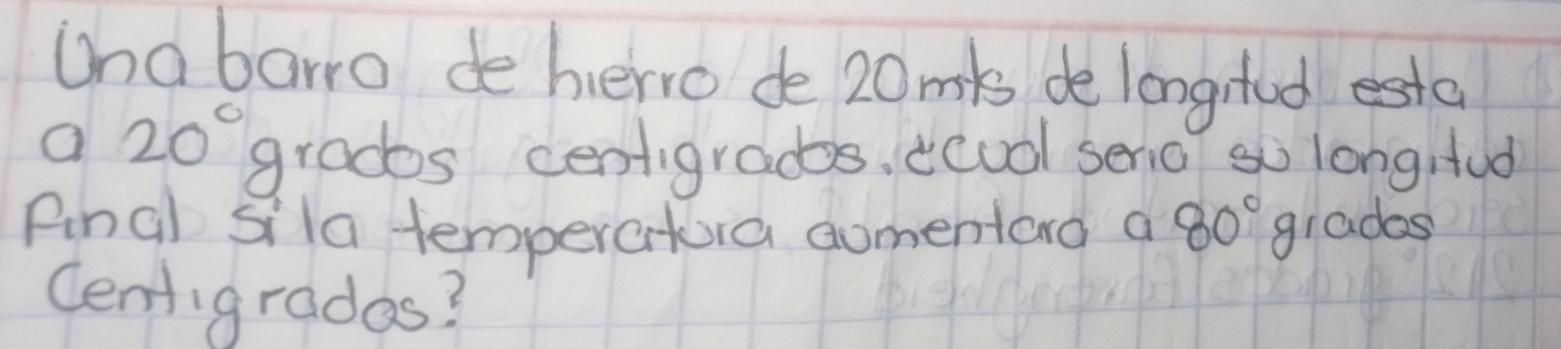 Una barra de hierro de 20 mts de longitud esta
a 20° grados centigrados. ¿cual seria su longitud
final si la temperatura aumentara a 80° grados
Centigrados?